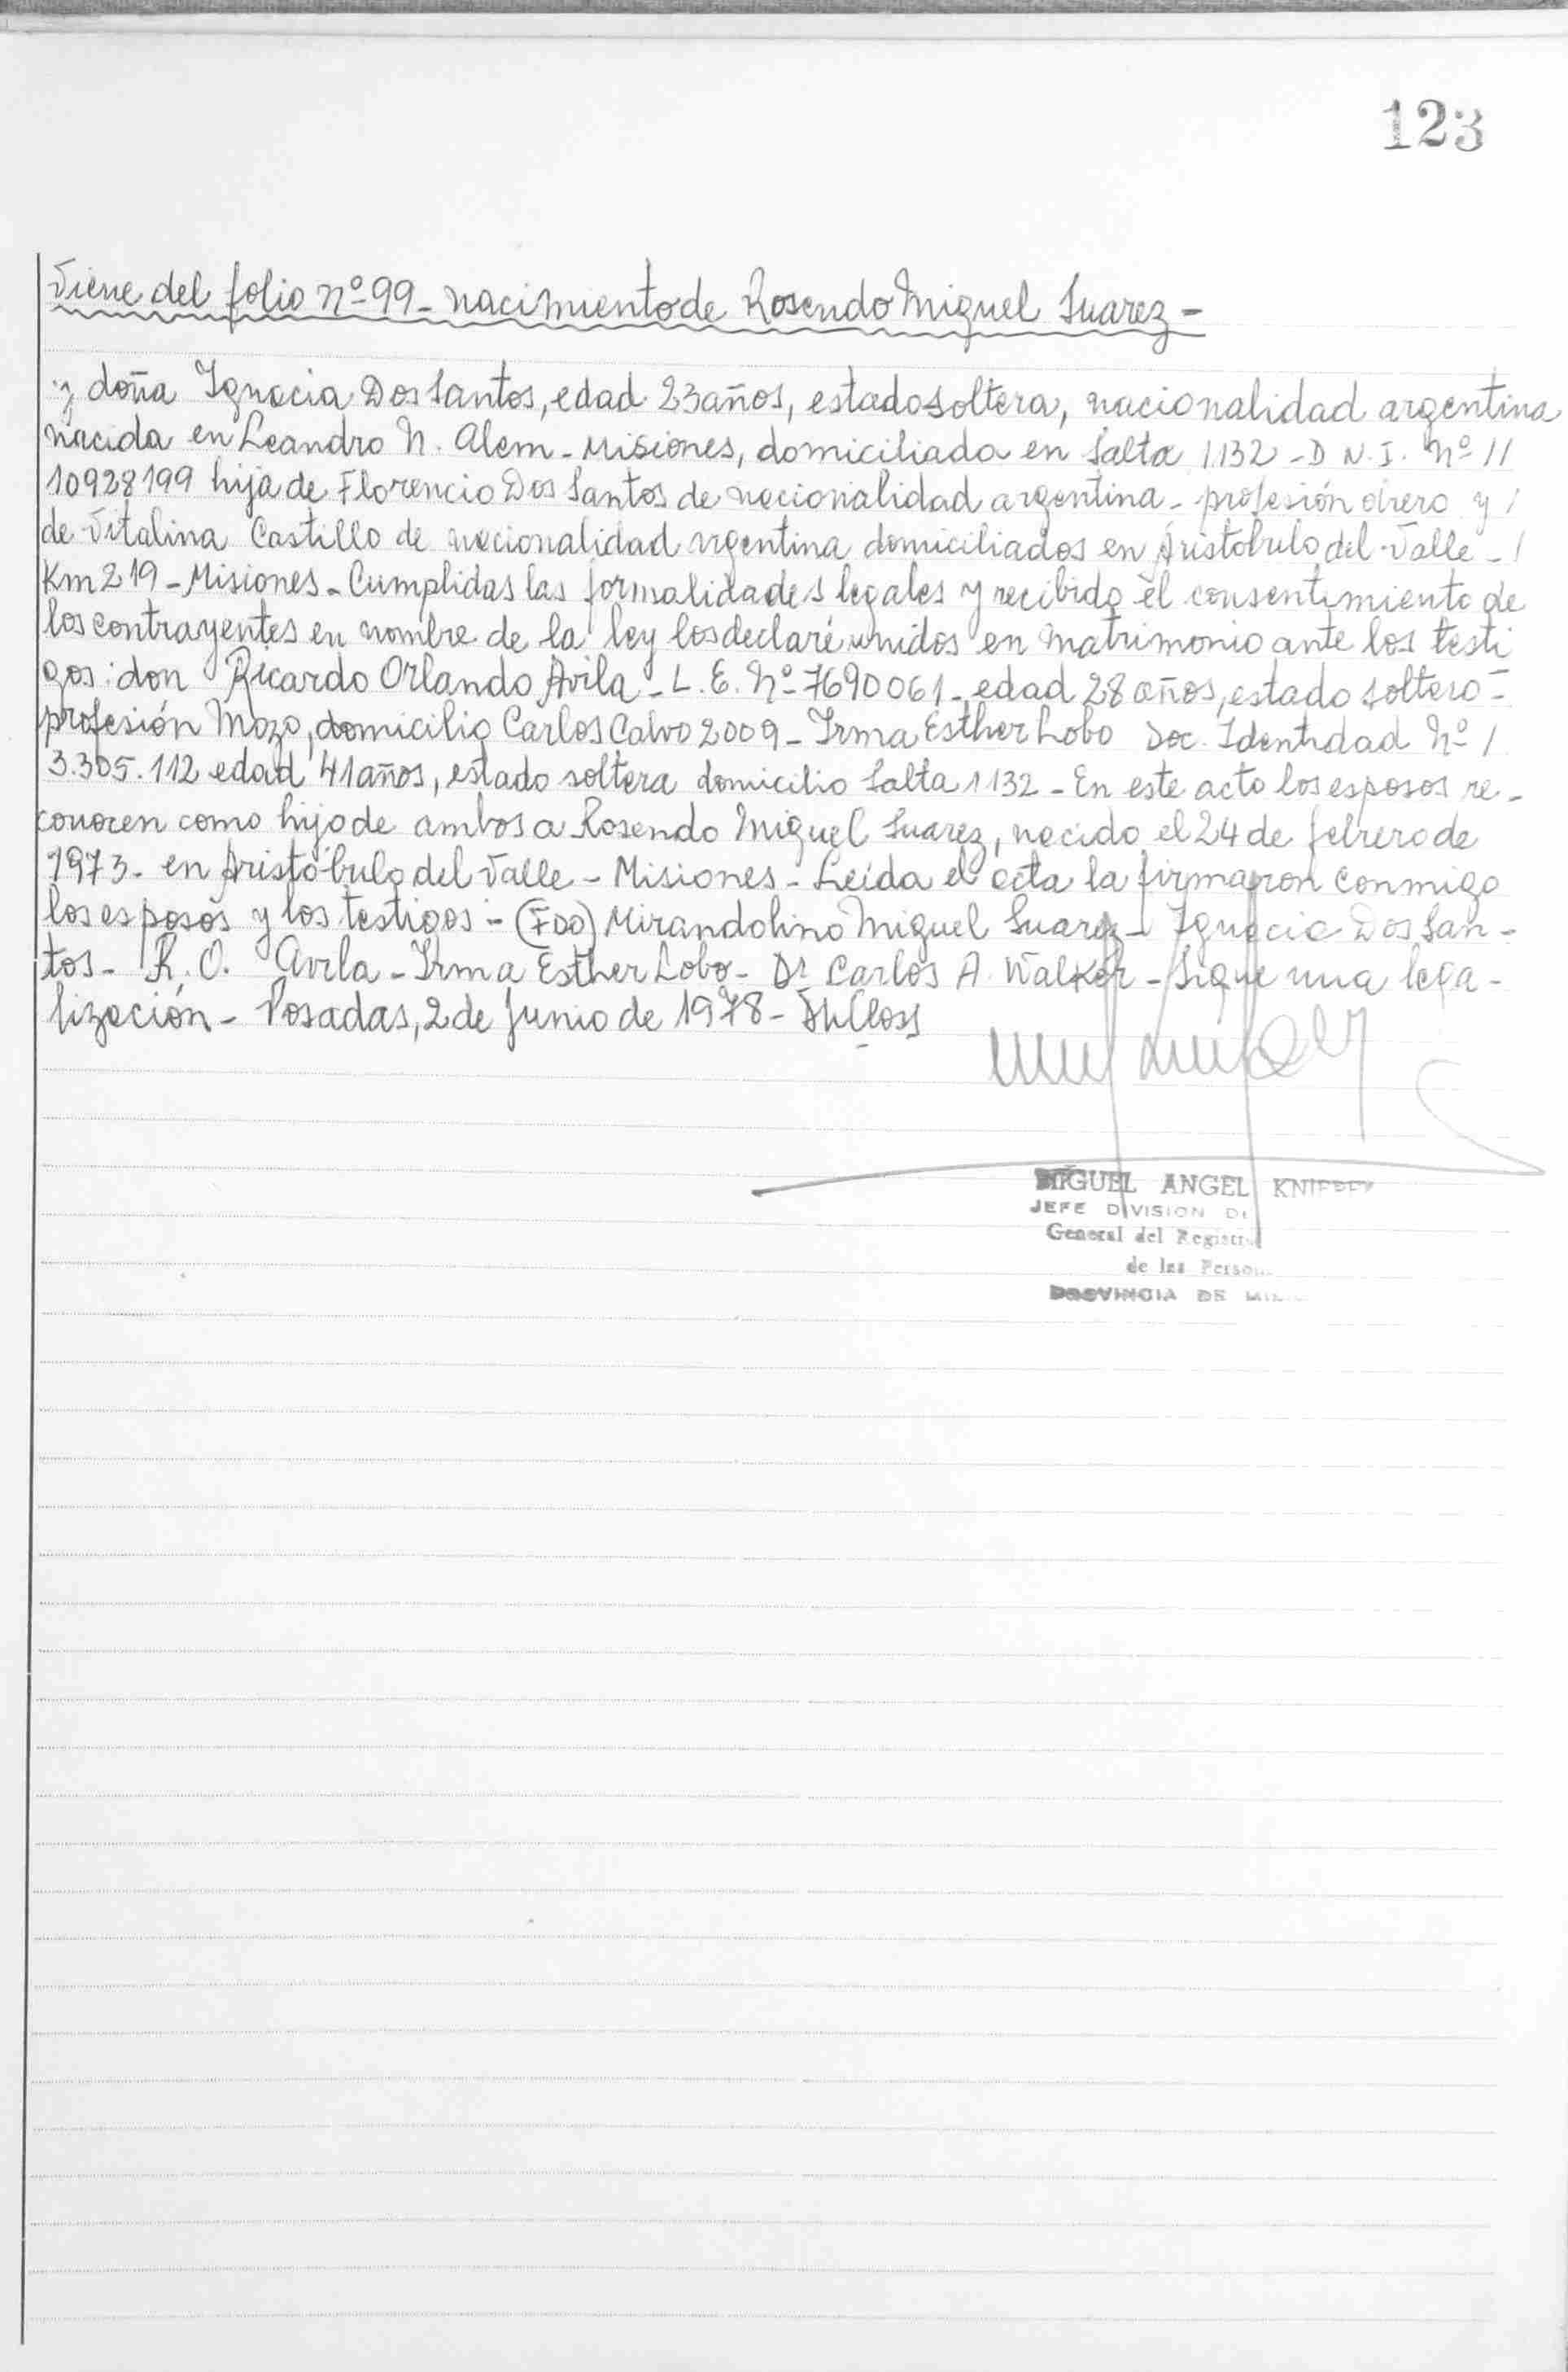 123
Viene del folio nº 99 - nacimiento de Rosendo Miguel Suarez -
y doña Ignacia Dos Santos, edad 23 años, estado soltera, nacionalidad argentina
nacida en Leandro N. Alem - Misiones, domiciliada en Salta 1132 - D N. I. Nº //
10928199 hija de Florencio Dos Santos de nacionalidad argentina - profesión obrero y /
de Vitalina Castillo de nacionalidad argentina domiciliados en Aristobulo del Valle - /
Km 219 - Misiones - Cumplidas las formalidades legales y recibido el consentimiento de
los contrayentes en nombre de la ley los declaré unidos en matrimonio ante los testi
gos: don Ricardo Orlando Avila - L. E. Nº 7690061 - edad 28 años, estado soltero -
profesión Mozo, domicilio Carlos Calvo 2009 - Irma Esther Lobo Doc. Identidad Nº /
3.305.112 edad 41 años, estado soltera domicilio Salta 1132 - En este acto los esposos re -
conocen como hijo de ambos a Rosendo Miguel Suarez, nacido el 24 de febrero de
1973 - en Aristóbulo del Valle - Misiones - Leída el acta la firmaron conmigo
los esposos y los testigos - (FDO) Mirandolino Miguel Suarez - Ignacia Dos San -
tos - R. O. Avila - Irma Esther Lobo - Dr Carlos A. Walker - Sigue una lega -
lización - Posadas, 2 de Junio de 1978 -
MIGUEL ANGEL
JEFE DIVISION
General del
de las
PROVINCIA DE